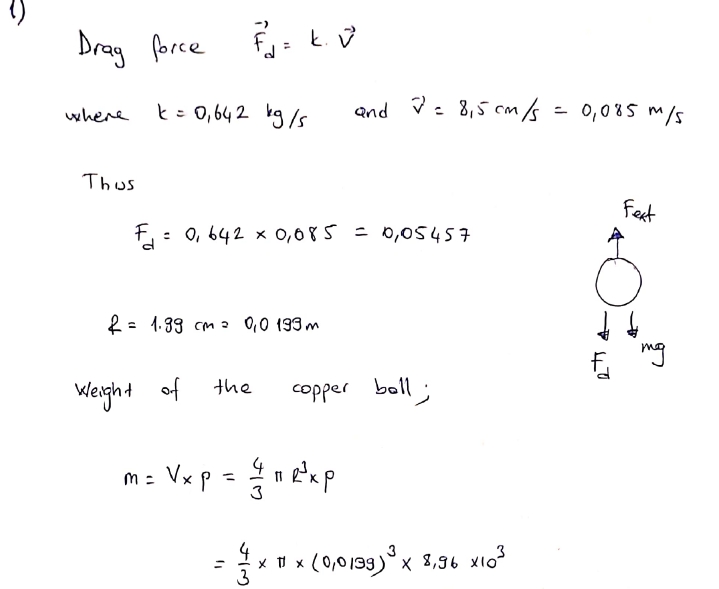 1)
Drag force F⃗d = k. v⃗
where k = 0,642 kg/s and v⃗ = 8,5 cm/s = 0,085 m/s
Thus
Fd = 0,642 x 0,085 = 0,05457
Fext
R = 1.99 cm = 0,0199 m
Fd mg
Weight of the copper ball;
m = V x ρ = 4/3 π R³ x ρ
= 4/3 x π x (0,0199)³ x 8,96 x10³